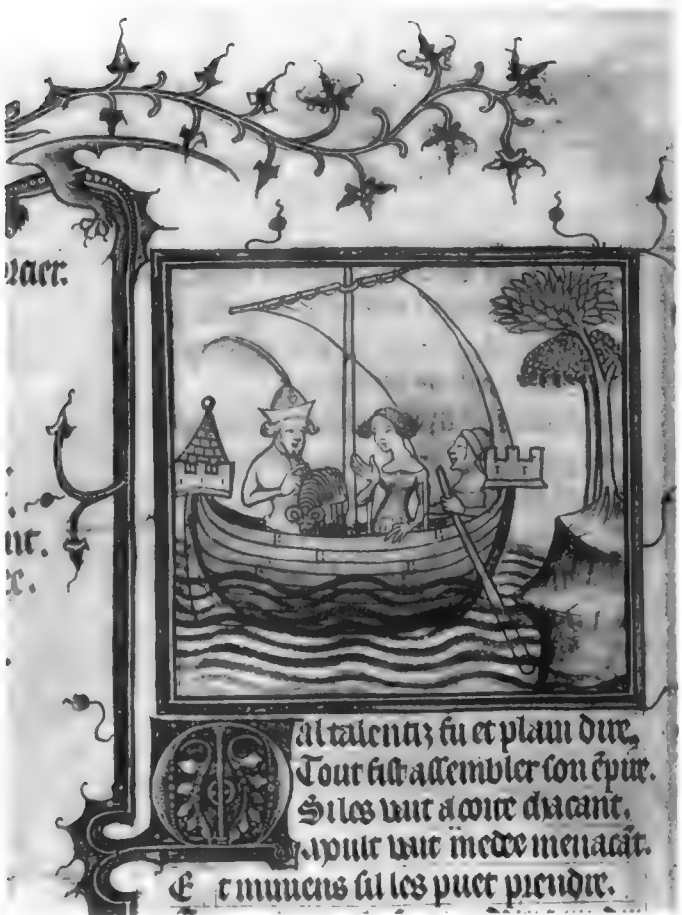 orcier.
Maltalentiz fu et plain dire,
Tout fist assembler son ēpire.
Si les vait a coite chacant.
Moult vait medee menacāt.
E t sil les puet prendre.